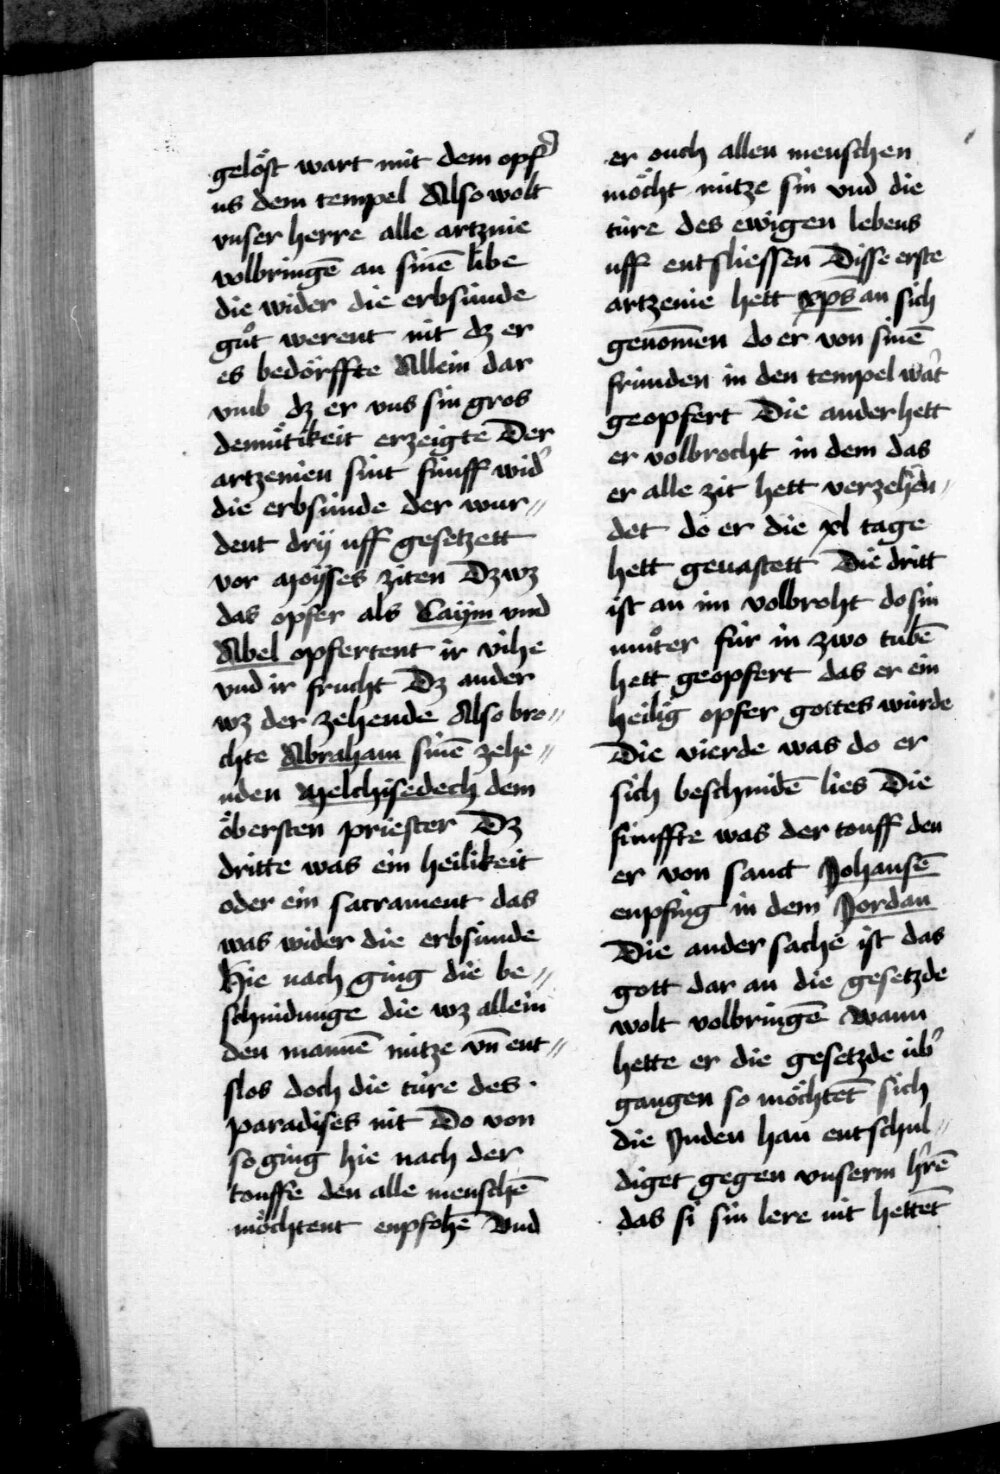 gelöst wart mit dem opf᾽
us dem tempel Also wolt
vnser herre alle artznie
volbringē an sinē libe
die wider die erbsünde
guͦt werent nit dz er
es bedörffte Allein dar
vmb dz er vns sin gros
demuͤtikeit erzeigte Der
artzenien sint fünff wid᾽
die erbsünde der wur〃
dent drÿ uff gesetzett
vor moÿses ziten Dz wz
das opfer als Caÿm vnd
Abel opfertent ir vihe
vnd ir frucht Dz ander
wz der zehende Also bro〃
chte Abraham sinē zehe〃
nden melchisedech dem
öbersten priester Dz
dritte was ein heilikeit
oder ein sacrament das
was wider die erbsünde
Hie nach ging die be〃
schnidunge die wz allein
den mannē nütze vn̄ ent〃
slos doch die türe des
paradises nit Do von
so ging hie nach der
touffe den alle menschē
möchtent enpfohē Vnd
er ouch allen menschen
möcht nütze sin vnd die
türe des ewigen lebens
uff entsliessen Disse erste
artzenie hett xp̄s an sich
genom̄en do er von sinē
fründen in den tempel wart
geopfert Die ander hett
er volbrocht in dem das
er alle zit hett verzehēn〃
det do er die xl tage
hett geuastett Die dritt
ist an im volbroht do sin
muͦter für in zwo tubē
hett geopfert das er ein
heilig opfer gottes würde
Die vierde was do er
sich beschnidē lies Die
fünffte was der touff den
er von sanct Johansē
enpfing in dem Jordan
Die ander sache ist das
gott dar an die gesetzde
wolt volbringē Wann
hette er die gesetzde üb᾽
gangen so möchtēt sich
die Juden han entschul〃
diget gegen vnserm h᾽rē
das si sin lere nit hettēt